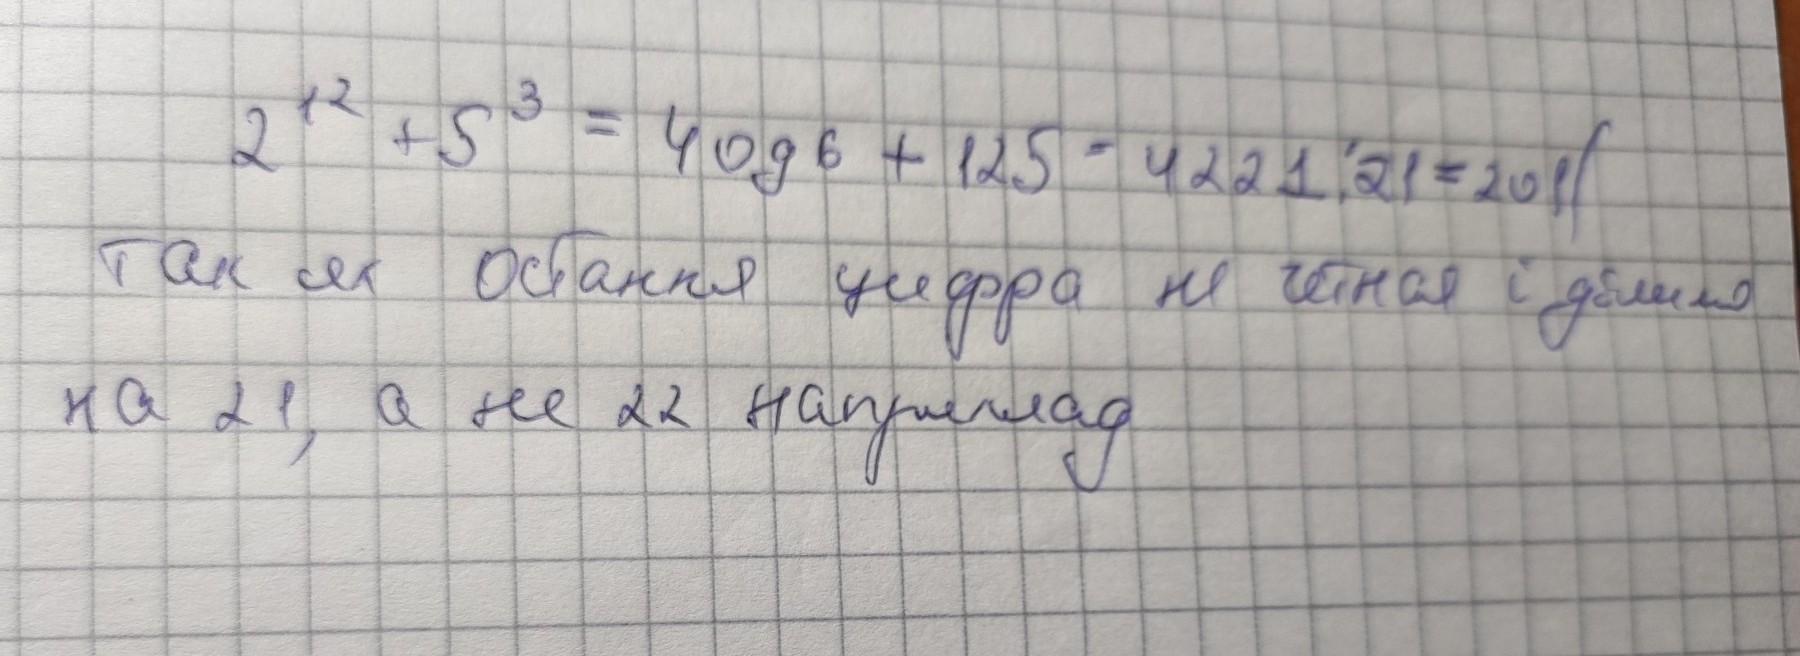 2¹² + 5³ = 4096 + 125 = 4221 : 21 = 201
Так як остання цифра не чётная і ділимо
на 21, а не 22 наприклад